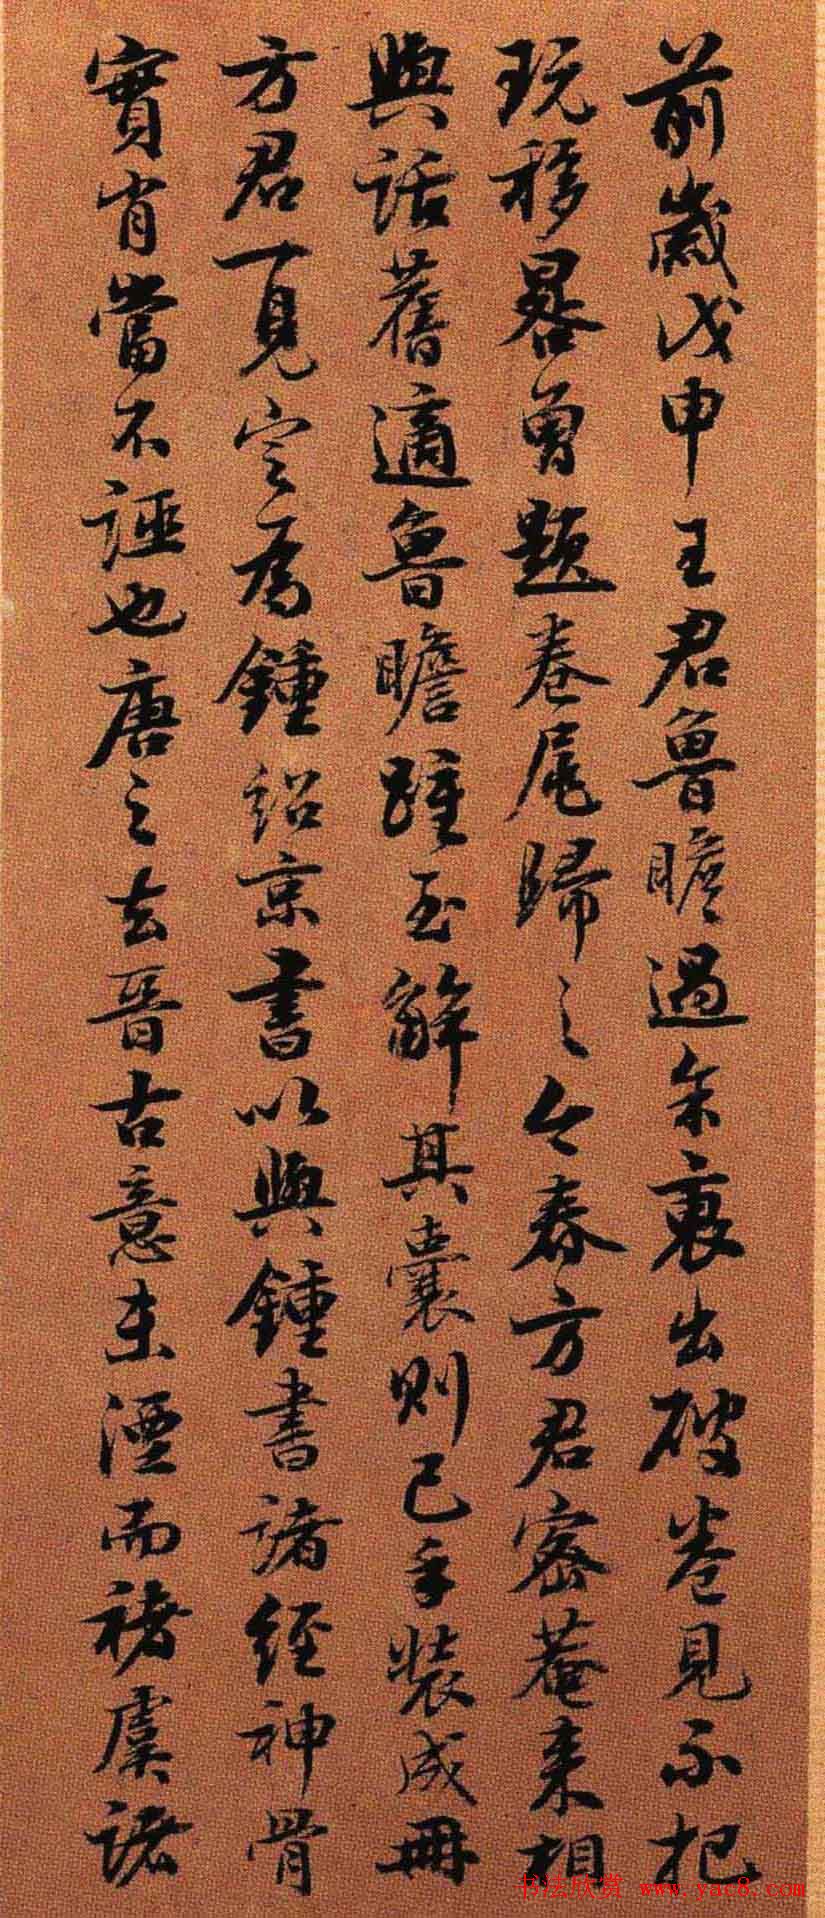 前歲戊申王君魯瞻過余出破卷見示把
玩移晷曾題卷尾歸之今春方君密菴来相
與話舊適魯瞻踵至解其囊則已手装成冊
方君一見定為鍾紹京書以與鍾書諸經神骨
實肖當不誣也唐之去晉古意未湮而褚虞諸
书法欣赏 www.yac8.com